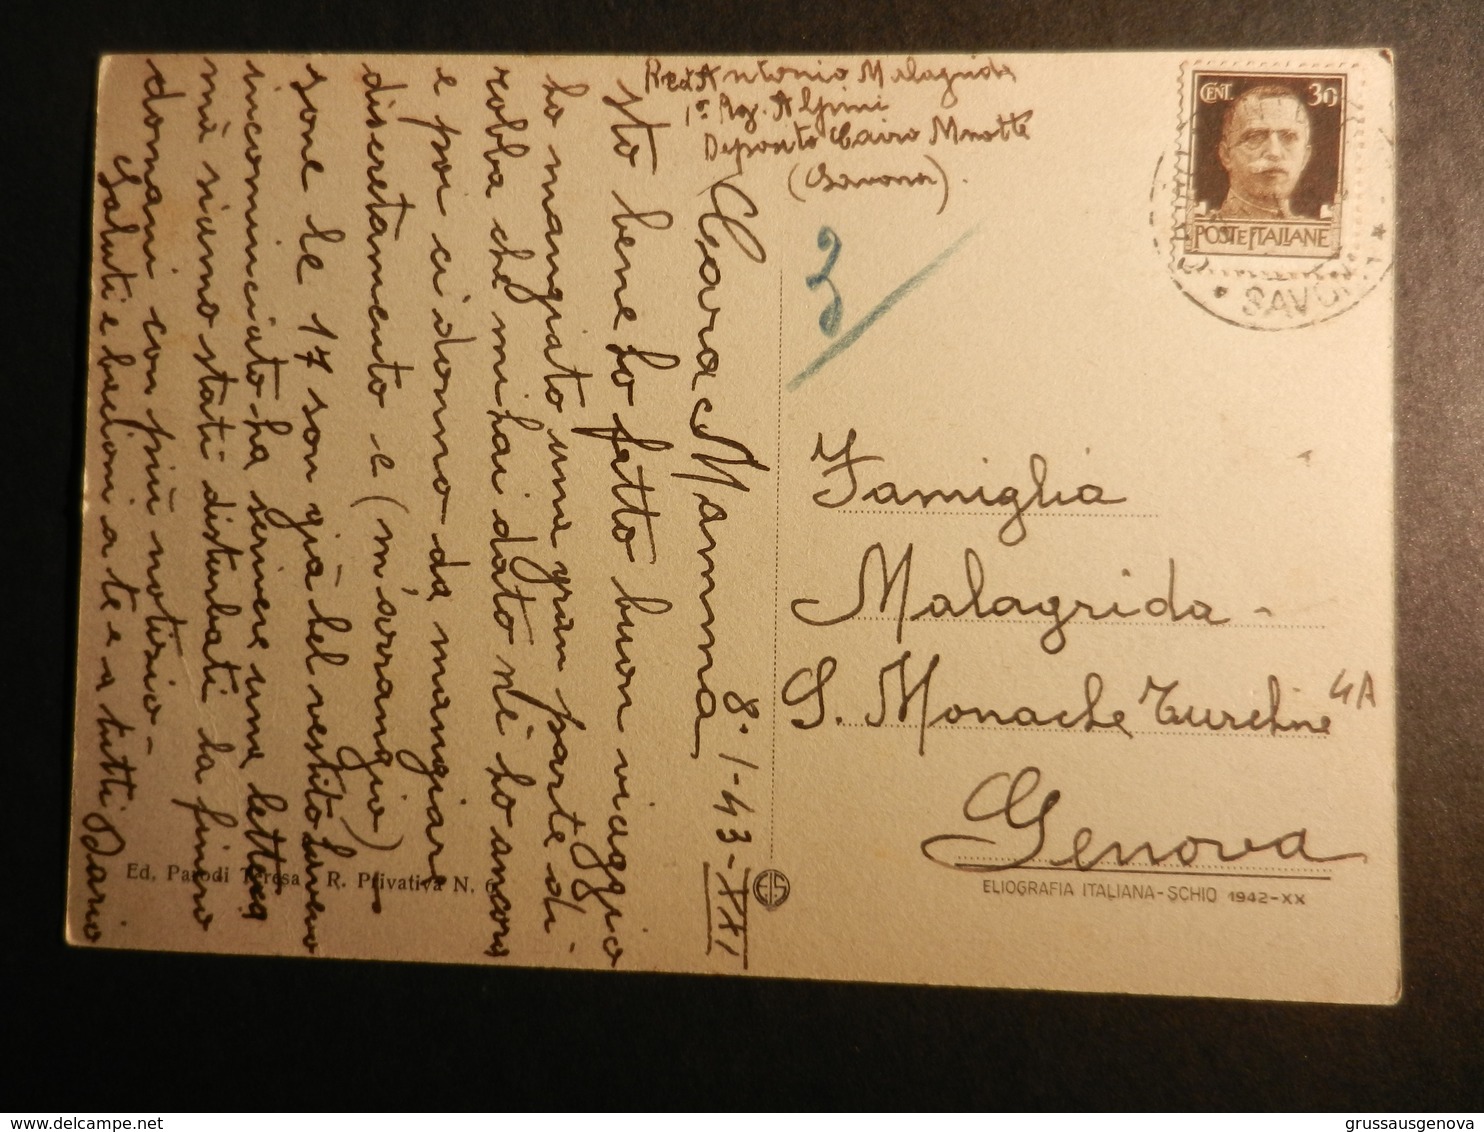 Antonio Malagrida
1° Reg. Alpini
Deposito Cairo Mnotte
(Savona).
8-1-43-XXI
Cara Mamma
sto bene ho fatto buon viaggio
ho mangiato una gran parte di
robba che mi hai dato nè ho ancora
e poi ci danno da mangiare
discretamento e (m'arrangio)
sone le 17 son già bel vestito
incominciato ha scrivere una lettera
mà siamo stati disturbati la finirò
domani con più notizio-
Saluti e bacioni a te e a tutti Dario
Ed. Parodi Teresa R. Privativa N. 6
CENT. 30
POSTE ITALIANE
SAVONA
3
Famiglia
Malagrida -
S. Monache Turchine 4A
Genova
EIS
ELIOGRAFIA ITALIANA-SCHIO 1942-XX
grussausgenova
www.delcampe.net